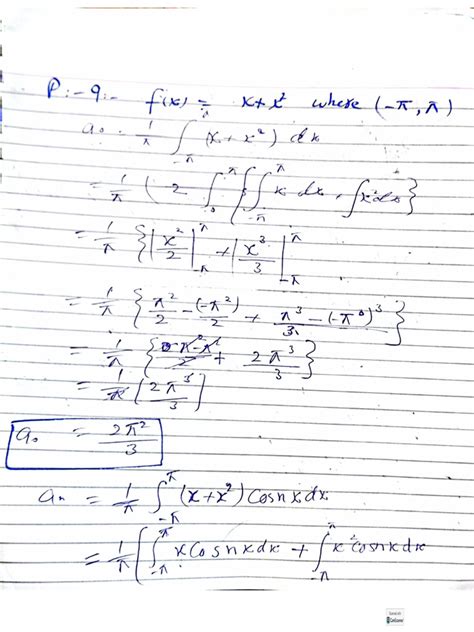 P:-9:- f(x) = x+x² where (-π, π)
a₀ = 1/π ∫_{-π}^{π} (x + x²) dx
= 1/π ( 2 ∫_{0}^{π} { ∫_{-π}^{π} x dx + ∫x²dx }
= 1/π { |x²/2|_{-π}^{π} + |x³/3|_{-π}^{π}
= 1/π { π²/2 - (-π²)/2 + π³ - (-π)³/3 }
= 1/π { π²-π²/2 + 2π³/3 }
= 1/π [ 2π³/3 ]
a₀ = 2π²/3
aₙ = 1/π ∫_{-π}^{π} (x+x²) Cosnx dx
= 1/π [ ∫_{-π}^{π} x Cosnxdx + ∫_{-π}^{π} x² Cosnxdx